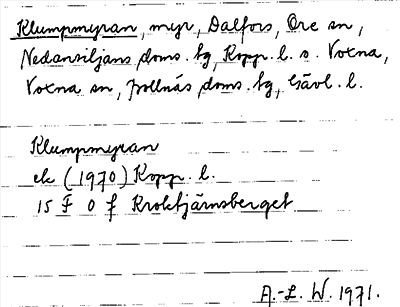 Klumpmyran, myr, Dalfors, Ore sn,
Nedansiljans doms. hg, Kopp. l. o. Voxna,
Voxna sn, Bollnäs doms. hg, Gävl. l.
Klumpmyran
ek (1970) Kopp. l.
15 F 0 f Kroktjärnsberget
A.-L. W. 1971.